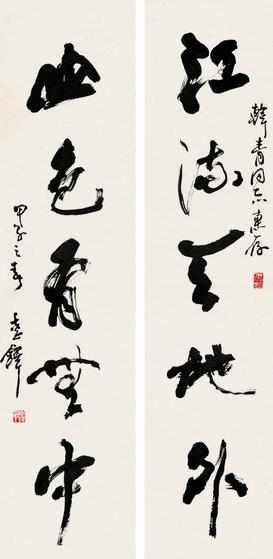 江流天地外
韩青同志惠存
山色有无中
甲子之春
志铎